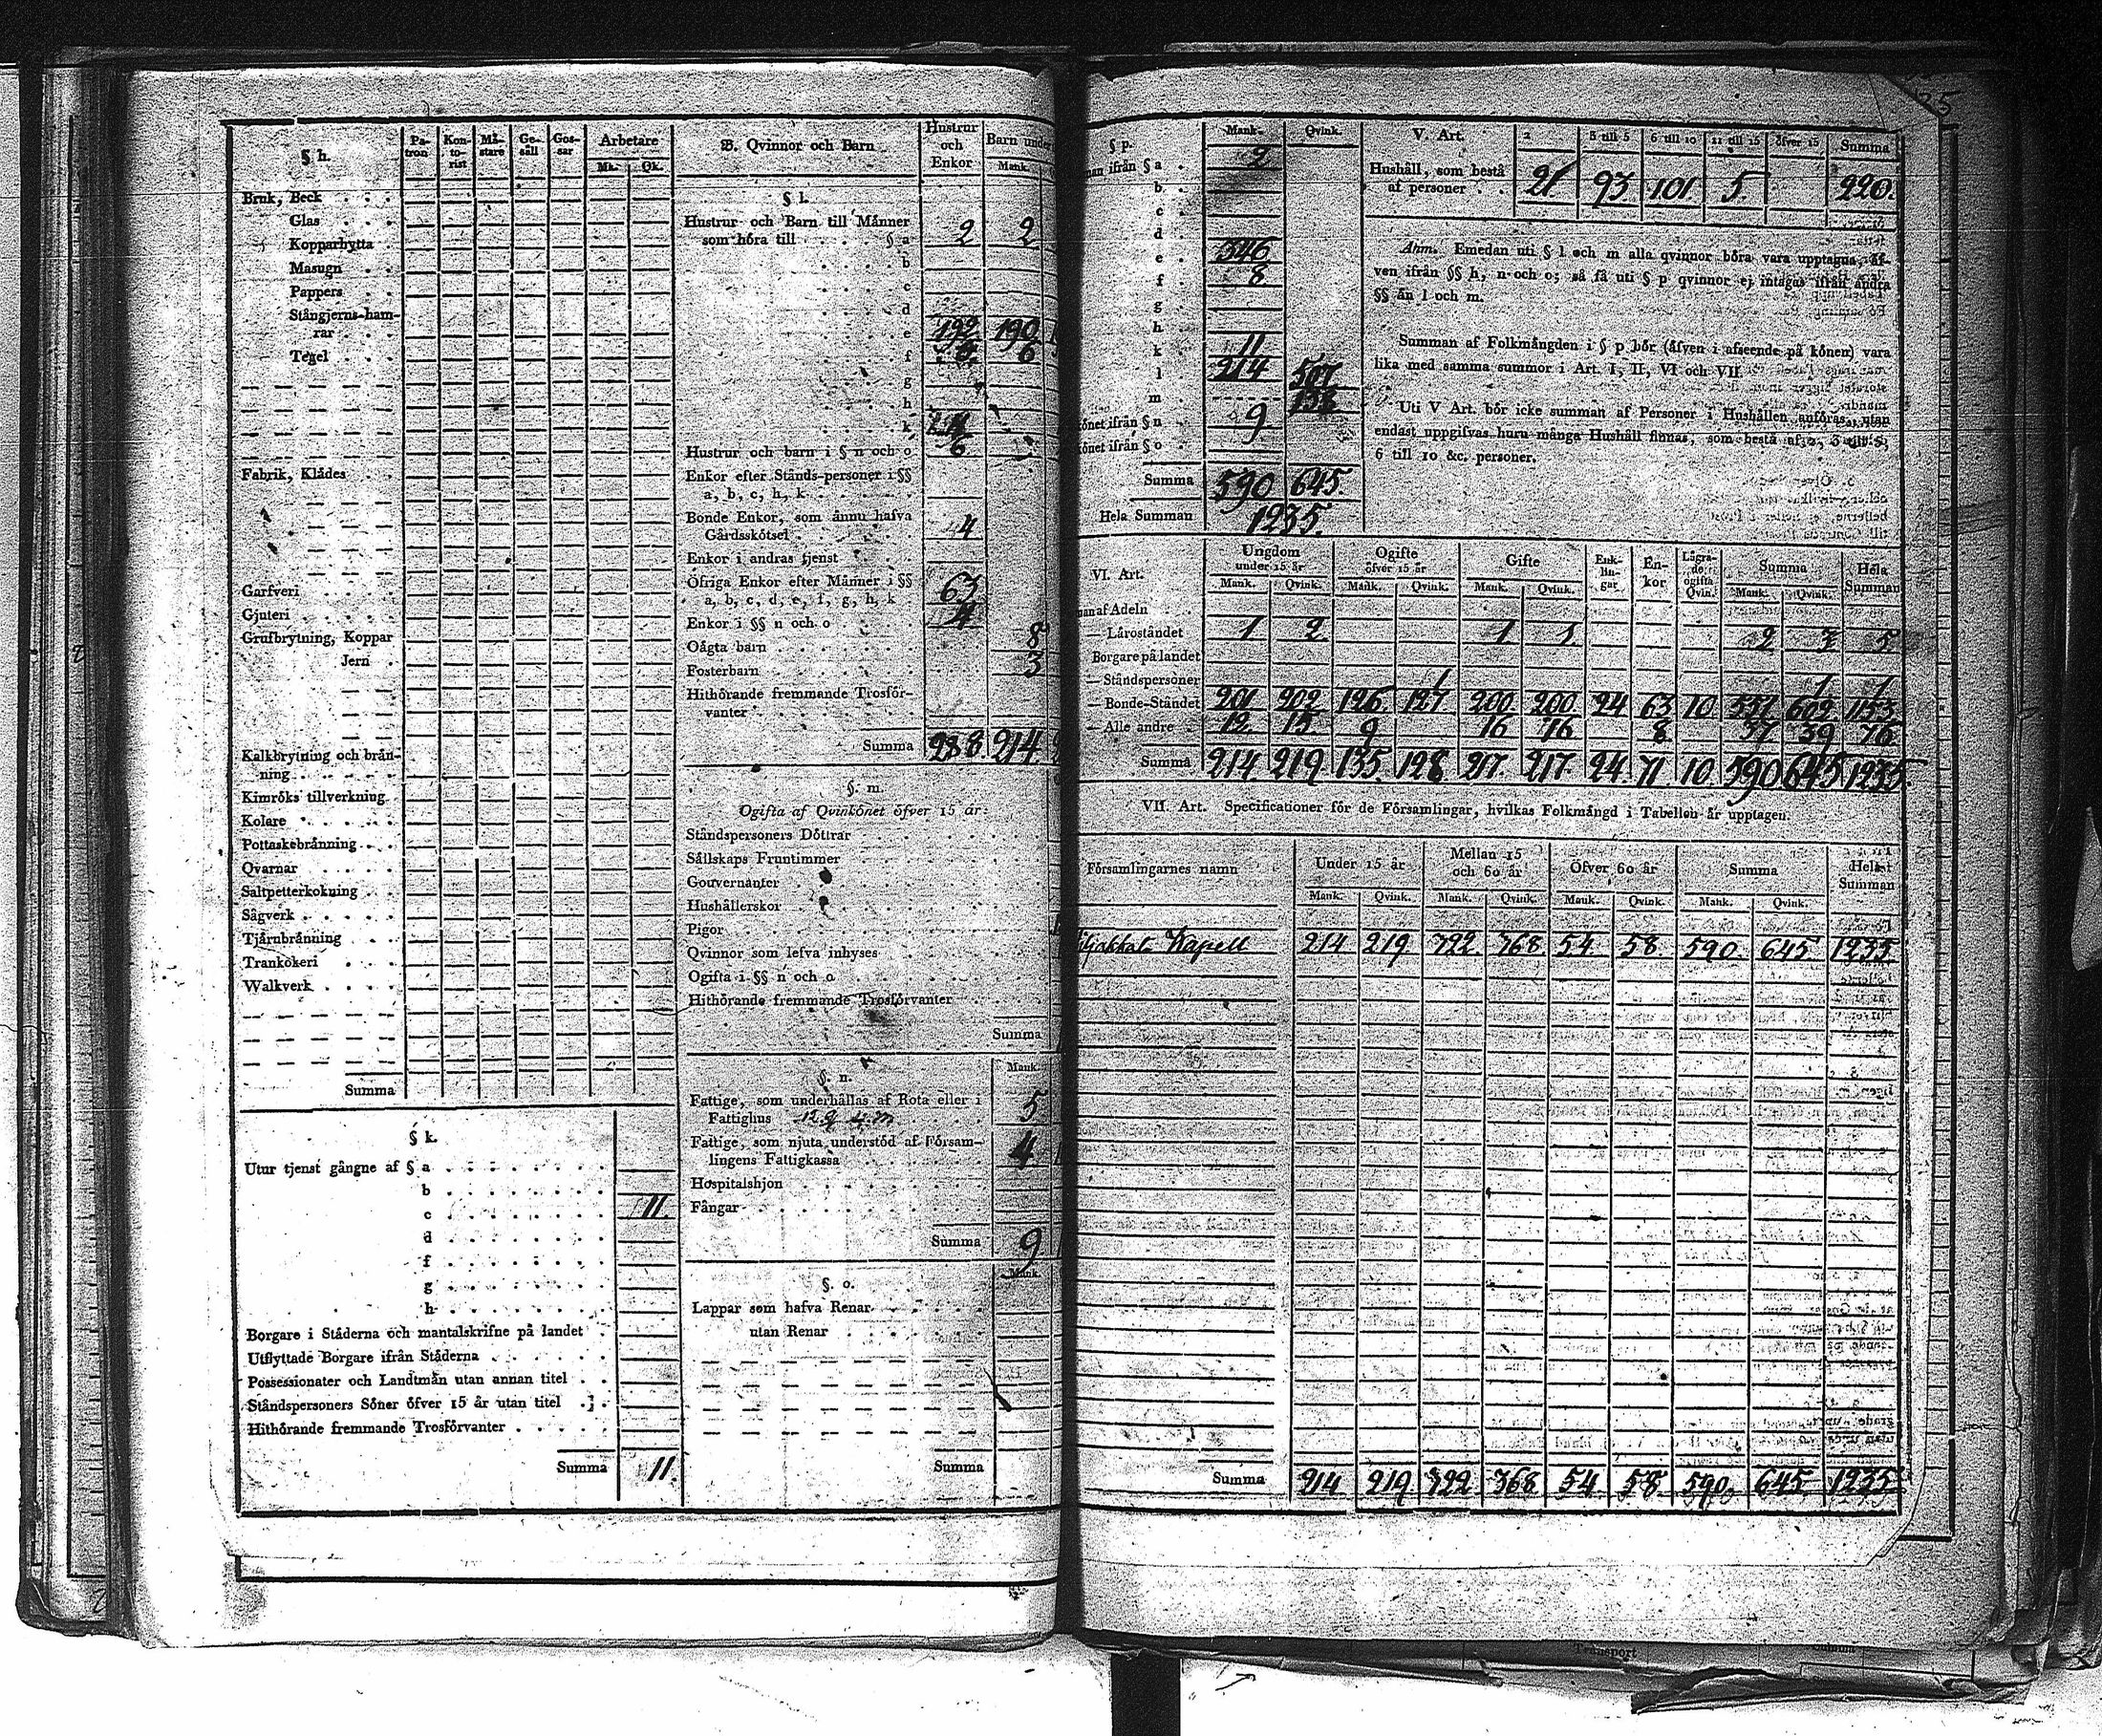 § h.
Pa-
tron
Kon-
to-
rist
Må-
stare
Ge-
såll
Gos-
sar
Arbetare
Mk.
Qk.
Bruk, Beck
Glas
Kopparhytta
Masugn
Pappers
Stångjerns-ham-
rar
Tegel
Fabrik, Klådes
Garfveri
Gjuteri
Grufbrytning, Koppar
Jern
Kalkbrytning och brån-
ning
Kimröks tillverkning
Kolare
Pottaskebrånning
Qvarnar
Saltpetterkokning
Sågverk
Tjårnbrånning
Trankokeri
Walkverk
Summa
§ k.
Utur tjenst gångne af § a
b
c 11.
d
f
g
h
Borgare i Ståderna och mantalskrifne på landet
Utflyttade Borgare ifrån Ståderna
Possessionater och Landtmån utan annan titel
Ståndspersoners Söner öfver 15 år utan titel
Hithörande fremmande Trosförvanter
Summa 11.
B. Qvinnor och Barn
Hustrur
och
Enkor
Barn under
Mank.
§ l.
Hustrur och Barn till Månner
som höra till § a 2 2
b
c
d
e 192 190
f 6
g
h
k
Hustrur och barn i § n och o 6
Enkor efter Stånds-personer i §§
a, b, c, h, k
Bonde Enkor, som ännu hafva
Gårdsskötsel 4
Enkor i andras tjenst
Öfriga Enkor efter Månner i §§
a, b, c, d, e, f, g, h, k 63
Enkor i §§ n och o 4
Oågta barn 8
Fosterbarn 3
Hithörande fremmande Trosför-
vanter
Summa 288 214
§. m.
Ogifta af Qvinkönet öfver 15 år:
Ståndspersoners Döttrar
Sållskaps Fruntimmer
Gouvernanter
Hushållerskor
Pigor
Qvinnor som lefva inhyses
Ogifta i §§ n och o
Hithörande fremmande Trosförvanter
Summa
§. n.
Mank.
Fattige, som underhållas af Rota eller i
Fattighus 5
Fattige, som njuta understöd af Församl-
lingens Fattigkassa 4
Hospitalshjon
Fångar
Summa 9
§. o.
Mank.
Lappar som hafva Renar
utan Renar
Summa
§ p.
Mank.
Qvink.
ifrån § a 2
b
c
d
e 346
f 8
g
h
k 11
l 214 507
m 138
könet ifrån § n 9
könet ifrån § o
Summa 590 645.
Hela Summan 1235.
V. Art.
2
3 till 5
6 till 10
11 till 15
öfver 15
Summa
Hushåll, som bestå
af personer 21 93 101 5 220.
Anm. Emedan uti § l och m alla qvinnor böra vara upptagna, äf-
ven ifrån §§ h, n och o; så få uti § p qvinnor ej intagas ifrån andra
§§ än l och m.
Summan af Folkmängden i § p bör (äfven i afseende på könen) vara
lika med samma summor i Art. I, II, VI och VII.
Uti V Art. bör icke summan af Personer i Hushållen anföras, utan
endast uppgifvas huru många Hushåll finnas, som bestå af 2, 3 till 5,
6 till 10 &c. personer.
VI. Art.
Ungdom
under 15 år
Ogifte
öfver 15 år
Gifte
Enk-
lin-
gar
En-
kor
Lägra-
de
ogifta
Qvin.
Summa
Hela
Summan
Mank. Qvink. Mank. Qvink. Mank. Qvink. Mank. Qvink.
af Adeln
— Lärostándet 1 2 1 1 2 3 5
Borgare på landet
— Ståndspersoner 1 1 1
— Bonde-Ståndet 201 202 126 127 200 200 24 63 10 551 602 1153
— Alle andre 12 15 9 16 16 8 37 39 76
Summa 214 219 135 128 217 217 24 71 10 590 645 1235
VII. Art. Specificationer för de Församlingar, hvilkas Folkmängd i Tabellen är upptagen.
Församlingarnes namn
Under 15 år
Mellan 15
och 60 år
Öfver 60 år
Summa
Hela
Summan
Mank. Qvink. Mank. Qvink. Mank. Qvink. Mank. Qvink.
Kapell 214 219 322 368 54 58 590 645 1235
Summa 214 219 322 368 54 58 590 645 1235